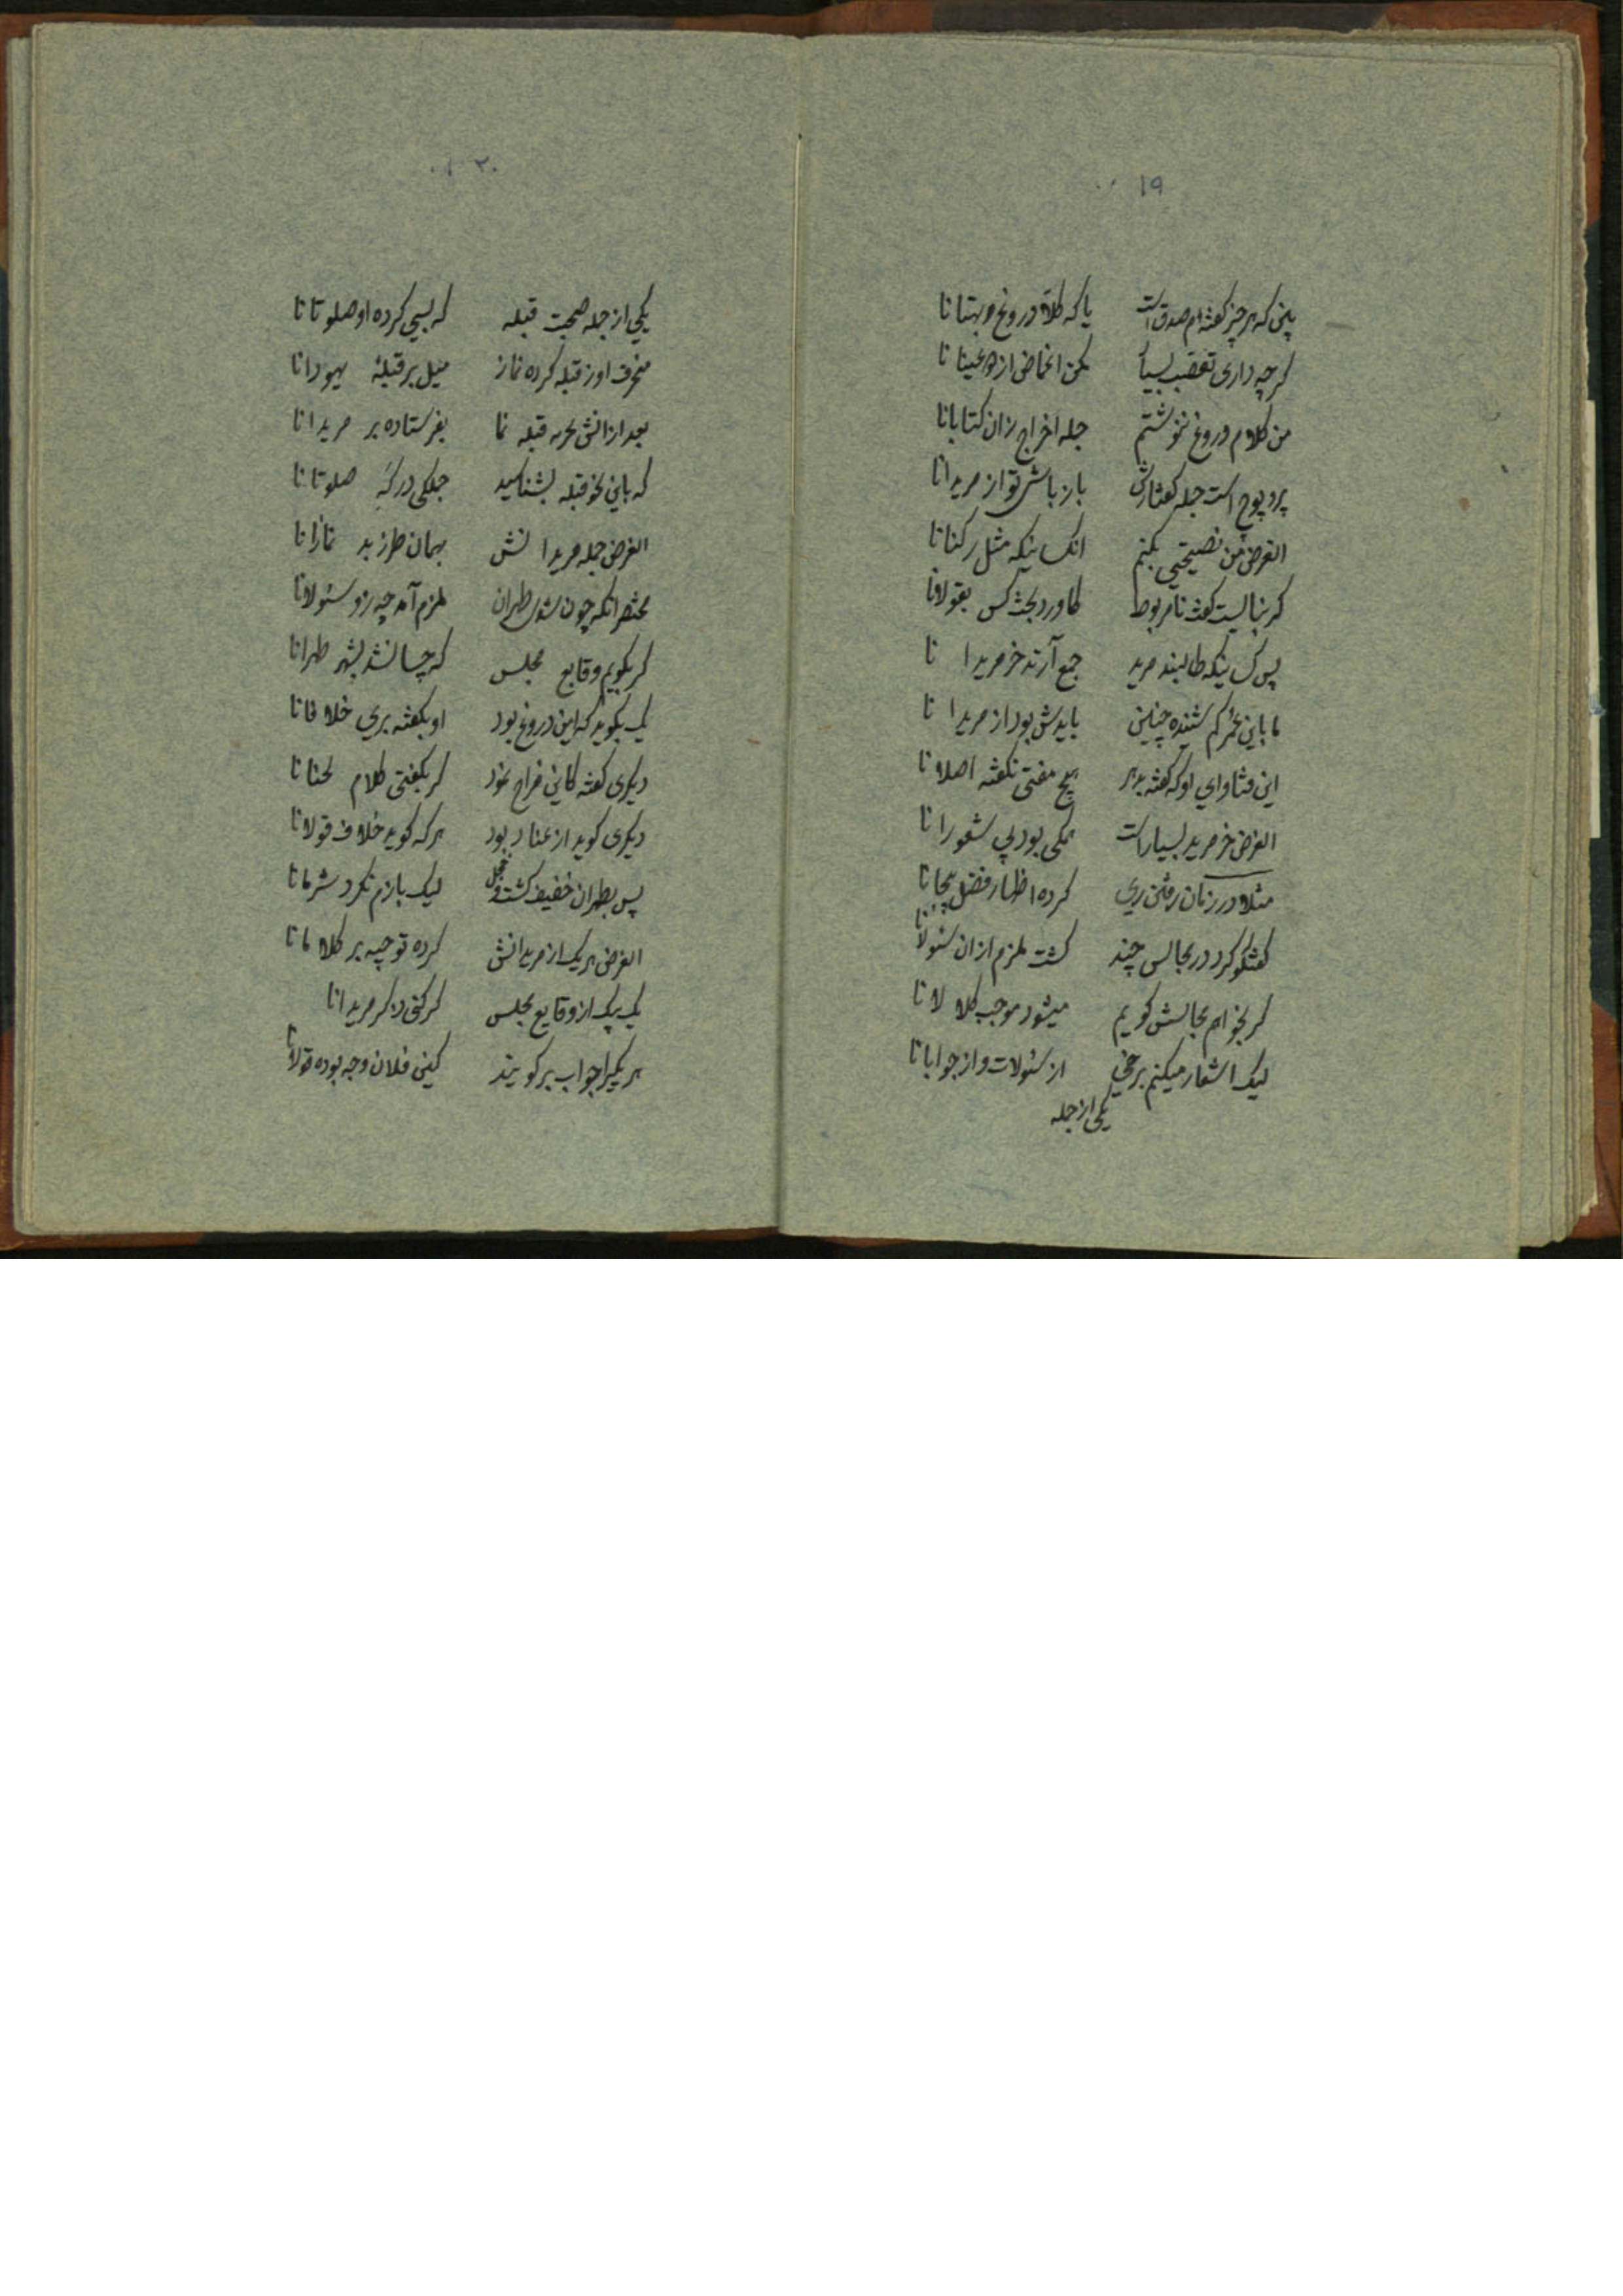 ۱۹
بین که هر چیز گفته‌ام صدق است یا که کلا دروغ و بهتانا
گر چه داری تعصب بسیا مکن اغماض از
من کلام دروغ ننوشتم جمله اخراج زان کتابانا
پرد پوچ است جمله گفتارش بازباش تو از مریدانا
الغرض من نصیحتی بکنم انکسانیکه مثل رکنانا
گر بنالیست گفت نامربوط کاورد بحث کس بقولانا
پس کسانیکه طالبند مرید جمع آرند خر مریدا نا
بایدش بود از مریدا نا
این فتاوای او که گفته بدهر هیچ مفتی نگفته اصلا نا
الغرض خر مرید بسیار است همگی بود بی شعورا نا
مثلا در زمان رفتن ری کرده اظهار فضل بیجانا
گفتگو کرد در مجالس چند گشت ملزم از ان سئولانا
گر بخواهم مجالسش گویم میشود موجب کلا لا نا
لیک اشعار میکنم برخی از سئولات و از جوابانا
یکی از جمله
۲۰
یکی از جمله صحبت قبله که بسی کرده او صلوتانا
منحرف او ز قبله کرده نماز میل بر قبلهٔ یهودانا
بعد از انش قبله نما بفرستاده بر مریدانا
که باین نحو قبله بشناسید جملگی در گه صلوتانا
الغرض جمله مریدا نش بهمان طرز بد نمازانا
مختصر انکه چون شد بطهران ملزم آمد چه زو سئولانا
گر بگویم وقایع مجلس که چسان شد بشهر طهرانا
یک بگوید که این دروغ بود او بگفته بری خلا فانا
دیگری گفته کاین مزاح نمود گر بگفتی کلام لحنانا
دیگری گوید از عناد بود هر که گوید خلاف قولانا
پس بطهران خفیف گشت و خجل لیک بازم نکرد شرمانا
الغرض هر یک از مریدانش کرده توجیه بر کلا مانا
یک بیک از وقایع مجلس گر کنی ذکر مریدانا
هر یکیرا جواب بر گویند کینی فلان وجه بوده قولانا